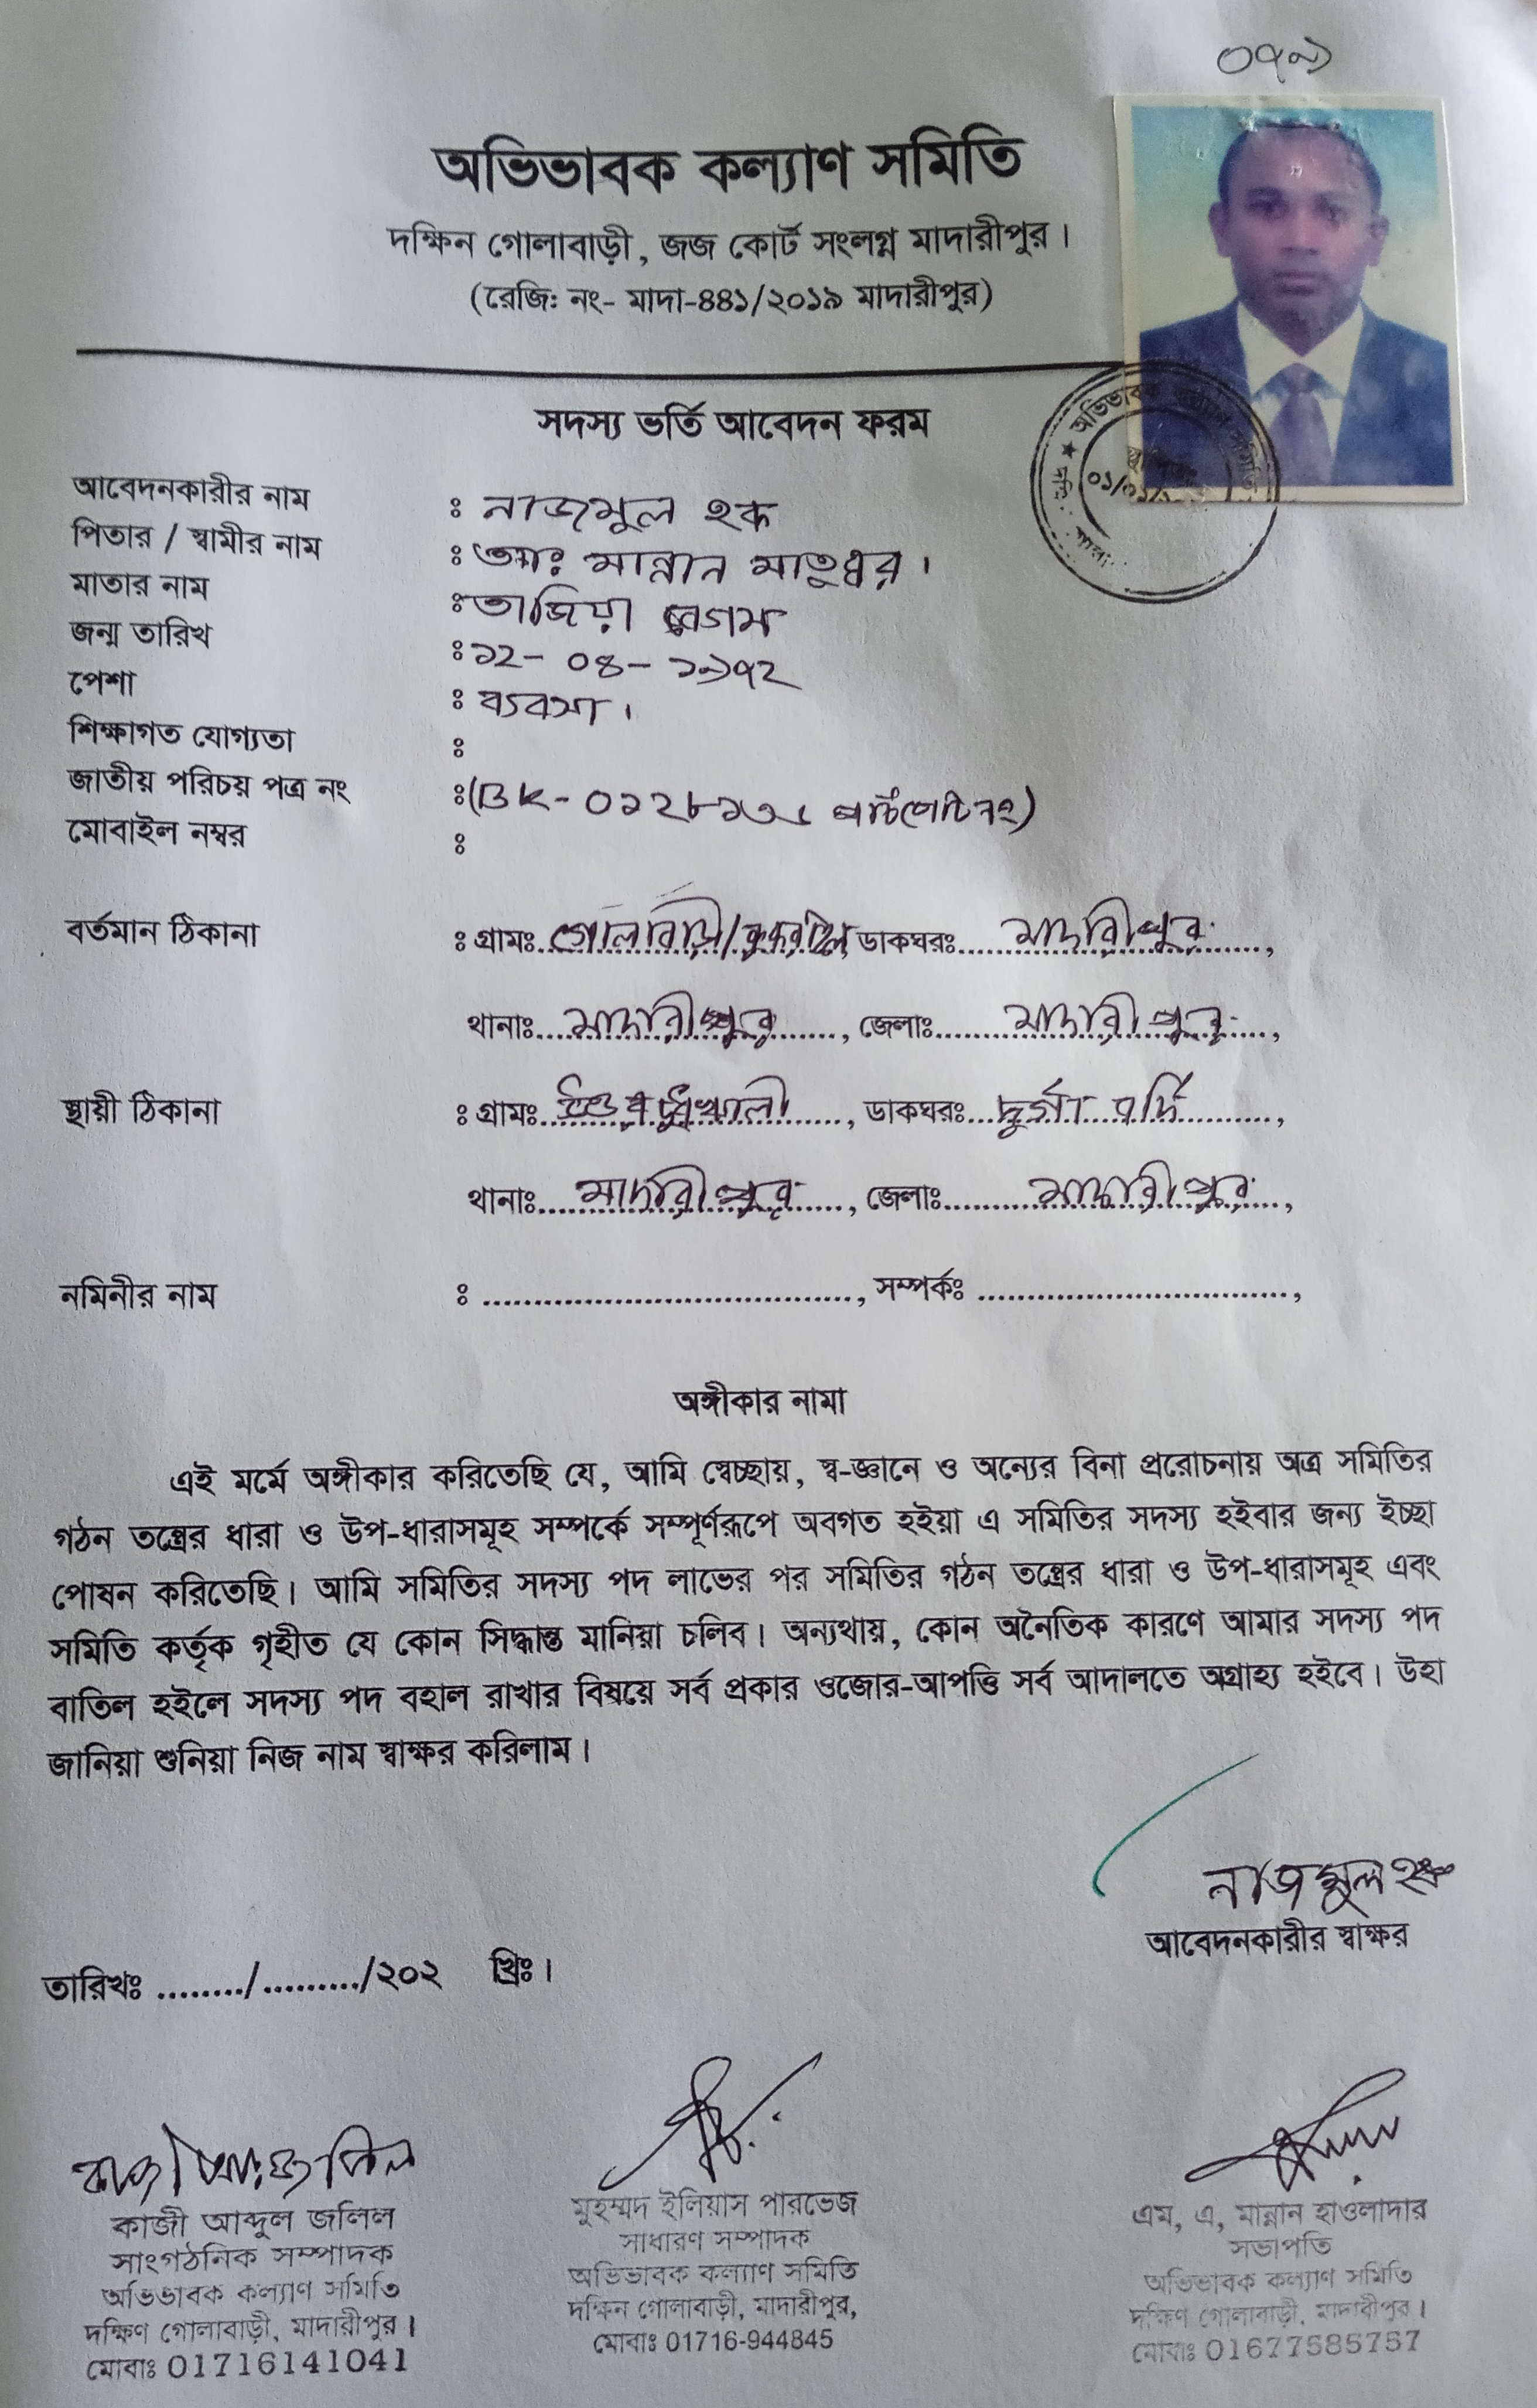 ০৭৯
অভিভাবক কল্যাণ সমিতি
দক্ষিন গোলাবাড়ী, জজ কোর্ট সংলগ্ন মাদারীপুর।
(রেজি: নং- মাদা-৪৪১/২০১৯ মাদারীপুর)
সদস্য ভর্তি আবেদন ফরম
আবেদনকারীর নাম : নাজমুল হক
পিতার / স্বামীর নাম : আঃ মান্নান মাতুব্বর।
মাতার নাম : তাজিয়া বেগম
জন্ম তারিখ : ১২- ০৪- ১৯৭২
পেশা : ব্যবসা।
শিক্ষাগত যোগ্যতা :
জাতীয় পরিচয় পত্র নং : (BK- ০১২৮১৩৬
মোবাইল নম্বর :
বর্তমান ঠিকানা : গ্রামঃ গোলাবাড়ী/ ডাকঘরঃ মাদারীপুর,
থানাঃ মাদারীপুর, জেলাঃ মাদারীপুর,
স্থায়ী ঠিকানা : গ্রামঃ , ডাকঘরঃ দুর্গা বর্দি,
থানাঃ মাদারীপুর, জেলাঃ মাদারীপুর,
নমিনীর নাম : ...................................., সম্পর্কঃ ..............................,
অঙ্গীকার নামা
এই মর্মে অঙ্গীকার করিতেছি যে, আমি স্বেচ্ছায়, স্ব-জ্ঞানে ও অন্যের বিনা প্ররোচনায় অত্র সমিতির
গঠন তন্ত্রের ধারা ও উপ-ধারাসমূহ সম্পর্কে সম্পূর্ণরূপে অবগত হইয়া এ সমিতির সদস্য হইবার জন্য ইচ্ছা
পোষন করিতেছি। আমি সমিতির সদস্য পদ লাভের পর সমিতির গঠন তন্ত্রের ধারা ও উপ-ধারাসমূহ এবং
সমিতি কর্তৃক গৃহীত যে কোন সিদ্ধান্ত মানিয়া চলিব। অন্যথায়, কোন অনৈতিক কারণে আমার সদস্য পদ
বাতিল হইলে সদস্য পদ বহাল রাখার বিষয়ে সর্ব প্রকার ওজোর-আপত্তি সর্ব আদালতে অগ্রাহ্য হইবে। উহা
জানিয়া শুনিয়া নিজ নাম স্বাক্ষর করিলাম।
নাজমুল হক
আবেদনকারীর স্বাক্ষর
তারিখঃ ......../........./২০২ খ্রিঃ।
কাজী আব্দুল জলিল
সাংগঠনিক সম্পাদক
অভিভাবক কল্যাণ সমিতি
দক্ষিণ গোলাবাড়ী, মাদারীপুর।
মোবাঃ 01716141041
মুহম্মদ ইলিয়াস পারভেজ
সাধারণ সম্পাদক
অভিভাবক কল্যাণ সমিতি
দক্ষিন গোলাবাড়ী, মাদারীপুর,
মোবাঃ 01716-944845
এম, এ, মান্নান হাওলাদার
সভাপতি
অভিভাবক কল্যাণ সমিতি
দক্ষিণ গোলাবাড়ী, মাদারীপুর।
মোবাঃ 01677585757